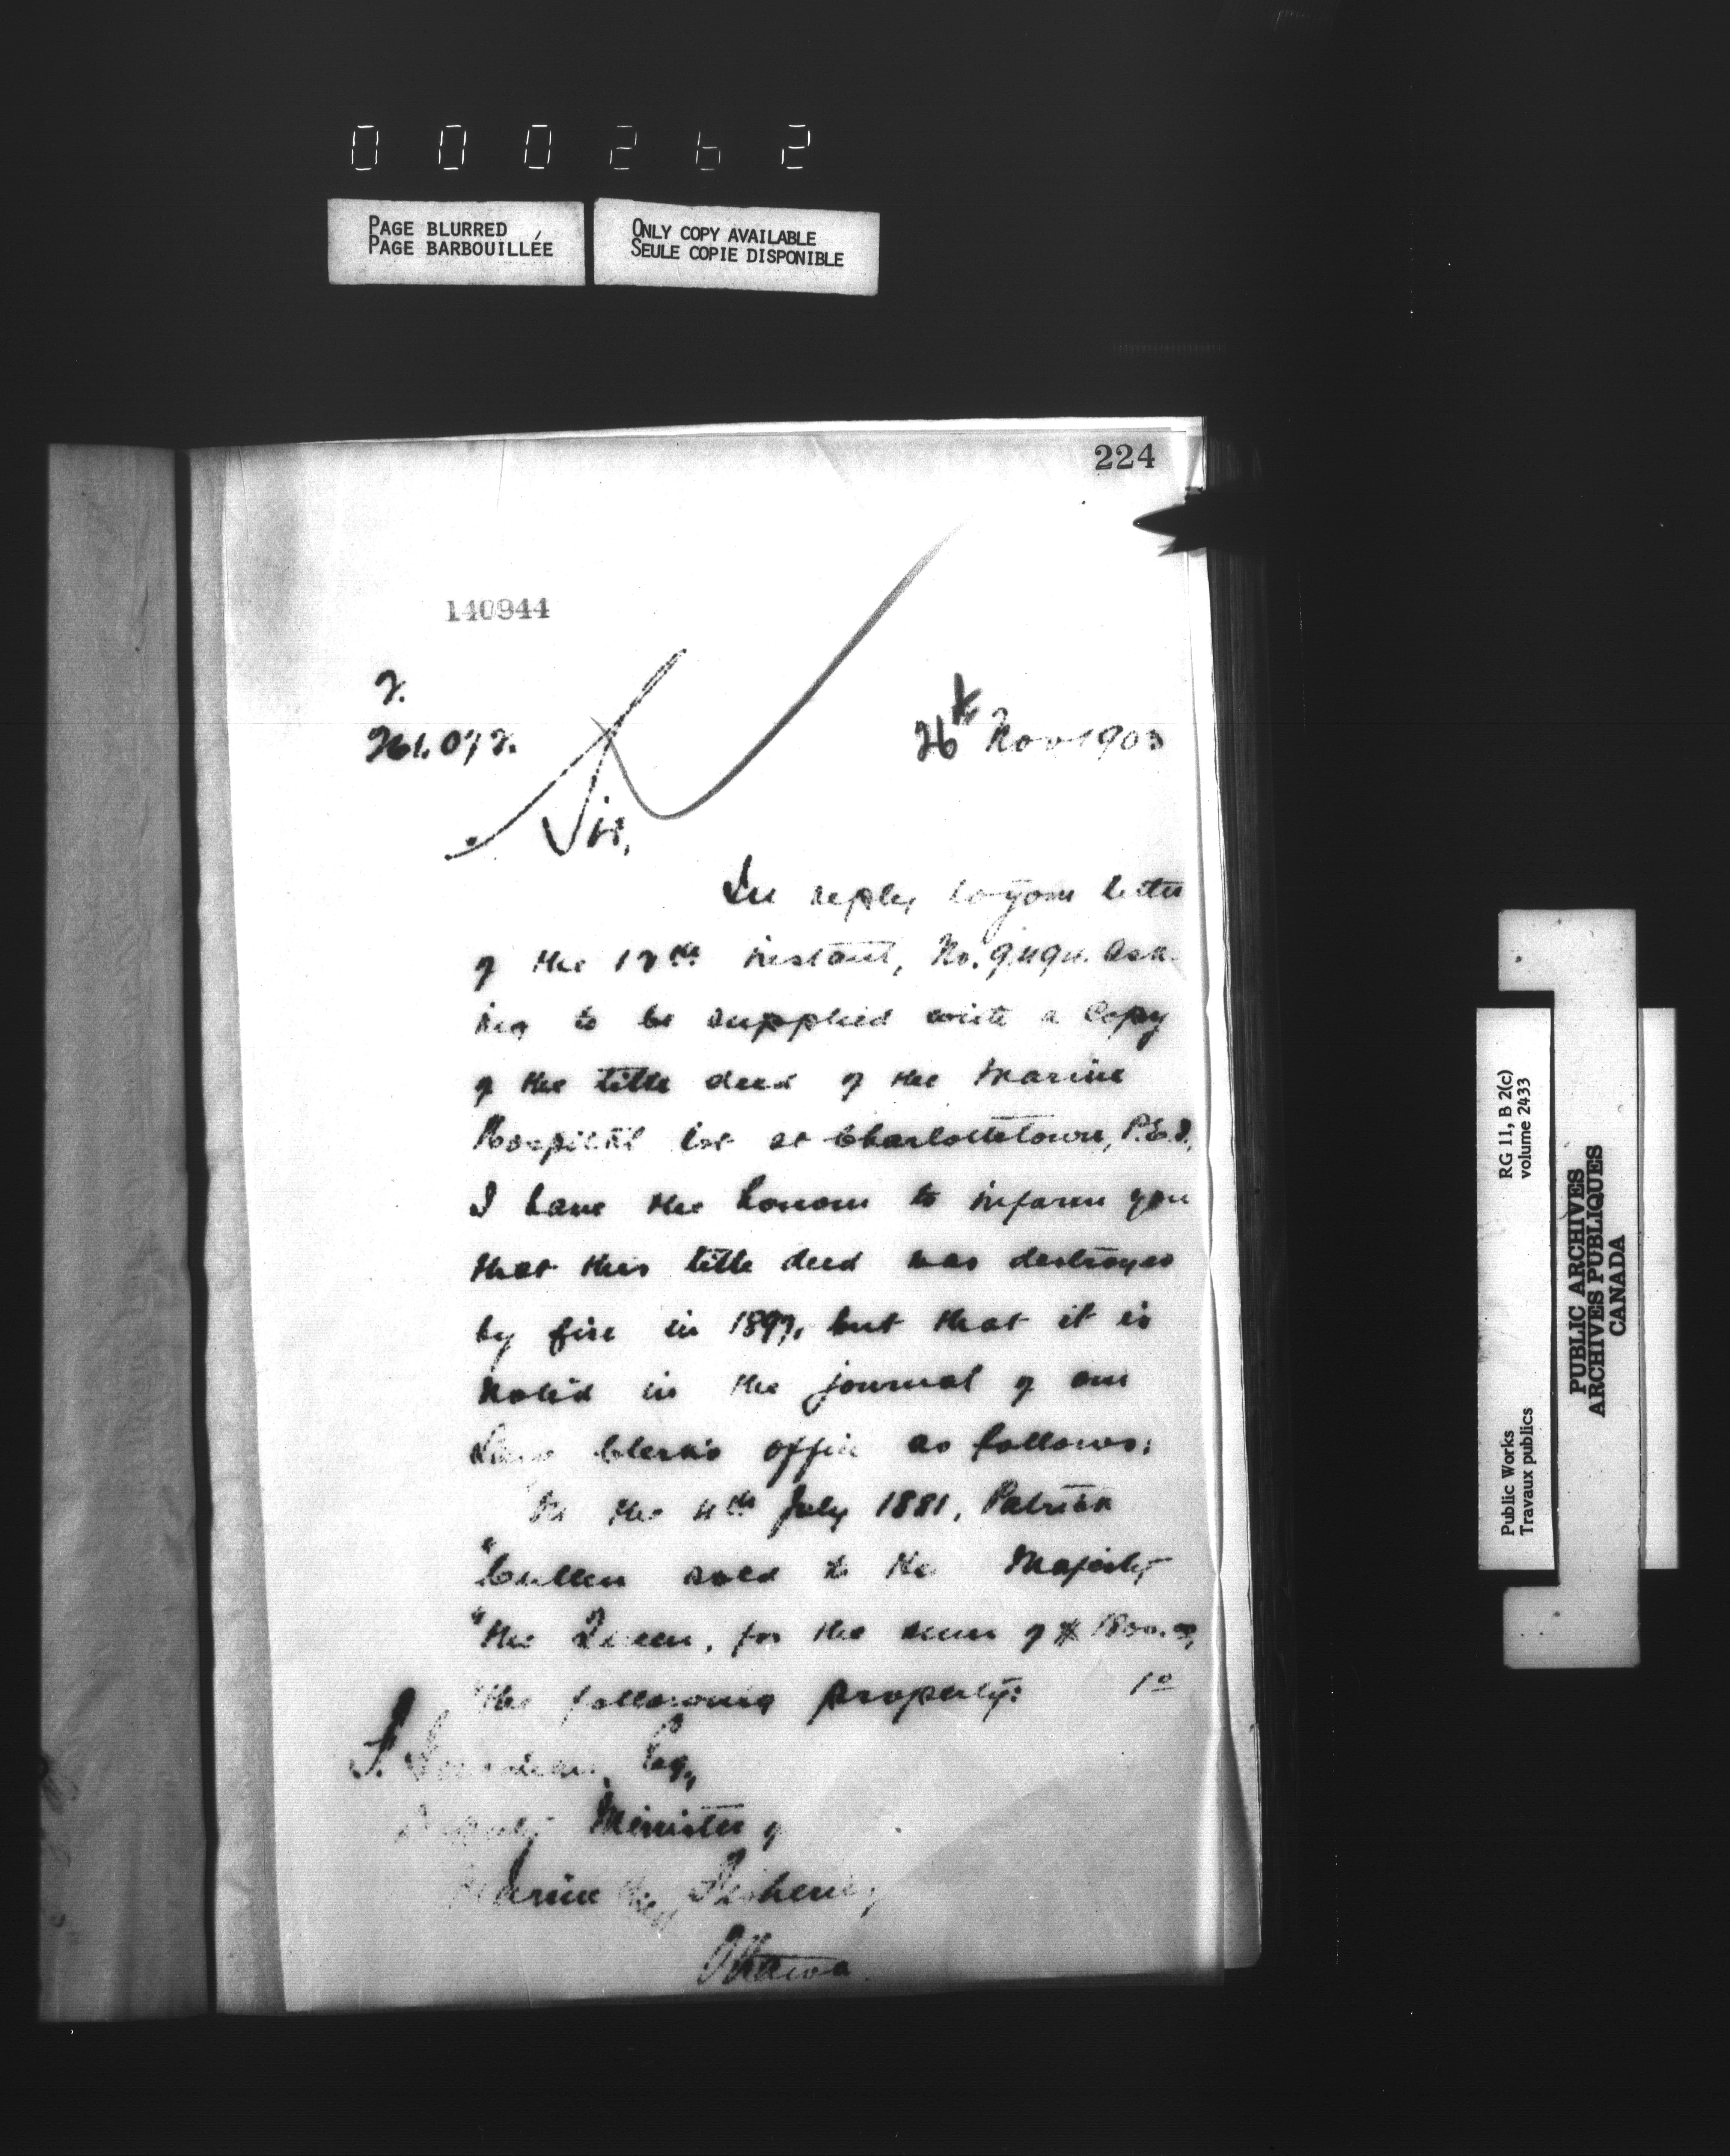 000262
PAGE BLURRED
PAGE BARBOUILLÉE
ONLY COPY AVAILABLE
SEULE COPIE DISPONIBLE
224
140944
26th Nov 1903
Sir,
In reply to your letter
of the instant, No. ask-
ing to be supplied with a Copy
of the title deed of the Marine
Hospital lot at Charlottetown, P.E.I.,
I have the honour to inform you
that this title deed was destroyed
by fire in 1897, but that it is
noted in the journal of our
Law Clerk's office as follows:
the 4th July 1881, Patrick
"Cullen sold to Her Majesty
"the Queen, for the sum of $1800.00,
"the following property: 1º
F. Gourdeau, Esq.,
Deputy Minister of
Marine Fisheries,
Ottawa.
RG 11, B 2(c)
volume 2433
Public Works
Travaux publics
PUBLIC ARCHIVES
ARCHIVES PUBLIQUES
CANADA